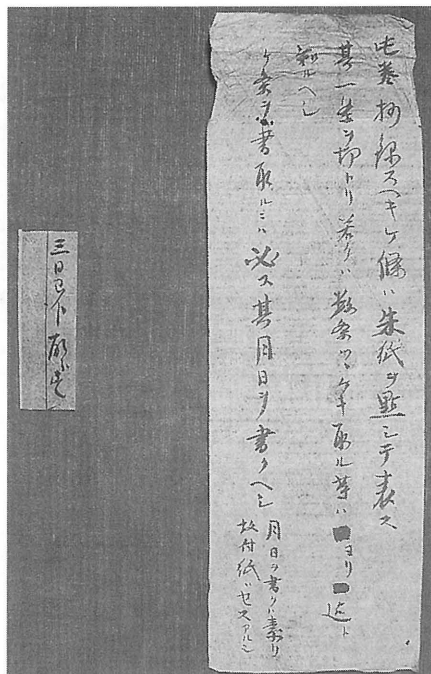 此巻抄録スヘキケ條ハ朱紙ヲ點シテ表ス
其一条ヲ抄トリ若クハ数条ツヽケキ取ル等ハ ヨリ 迄ト
知ルヘシ
ケ条ヲ書取ルニハ必ス其月日ヲ書クヘシ
月日ヲ書クハ素ヨリ
故付紙ハセスアルヘシ
三日已下